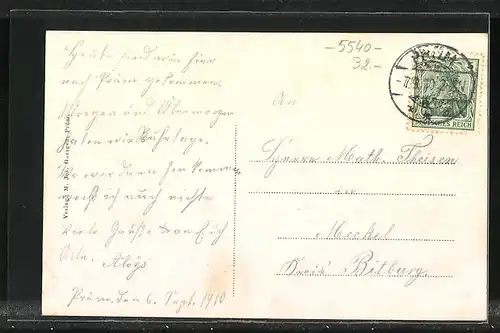 -5540-
32.-
Heute sind wir hier
nach Prüm gekommen.
Morgen und Übermorgen
haben wir Ruhetage.
Wo wir dann hin kommen
weiß ich auch nicht.
Viele Grüße von Euch
Aloys
Prüm, den 6. Sept. 1910
Verlag M. Jos. Prüm.
PRÜM
DEUTSCHES REICH
An
Herrn Math. Theisen
in
Meckel
Kreis Bitburg.